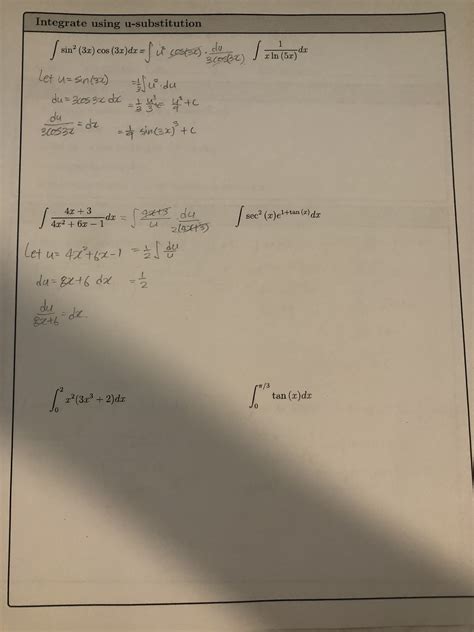 Integrate using u-substitution
∫ sin² (3x) cos (3x)dx = ∫ u² cos(3x) · du/3cos(3x)
∫ 1/(x ln (5x)) dx
Let u = sin(3x)
= 1/3 ∫ u² · du
du = 3cos3x dx
du/3cos3x = dx
∫ (4x + 3)/(4x² + 6x − 1) dx = ∫ (4x+3)/u · du/2(4x+3)
∫ sec² (x)e^{1+tan (x)}dx
Let u = 4x²+6x-1
= 1/2 ∫ du/u
du = 8x+6 dx
= 1/2
du/8x+6 = dx
∫₀² x²(3x³ + 2)dx
∫₀^{π/3} tan (x)dx